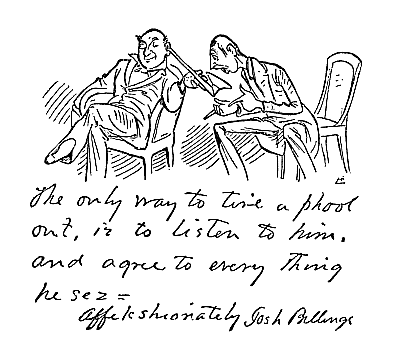 The only way to tire a phool
out, is to listen to him.
and agree to every thing
he sez =
Affekshionately Josh Billings